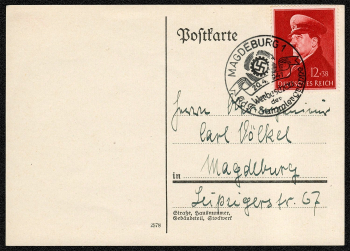 Postkarte
MAGDEBURG 1
12+38
DEUTSCHES REICH
der
Herrn
Carl Völkel
in Magdeburg
Leipzigerstr. 67
Straße, Hausnummer,
Gebäudeteil, Stockwerk